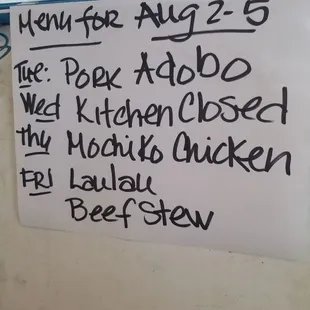 Menu for Aug 2-5
Tue: Pork Adobo
Wed Kitchen Closed
Thu Mochiko Chicken
FRI Laulau
Beef Stew